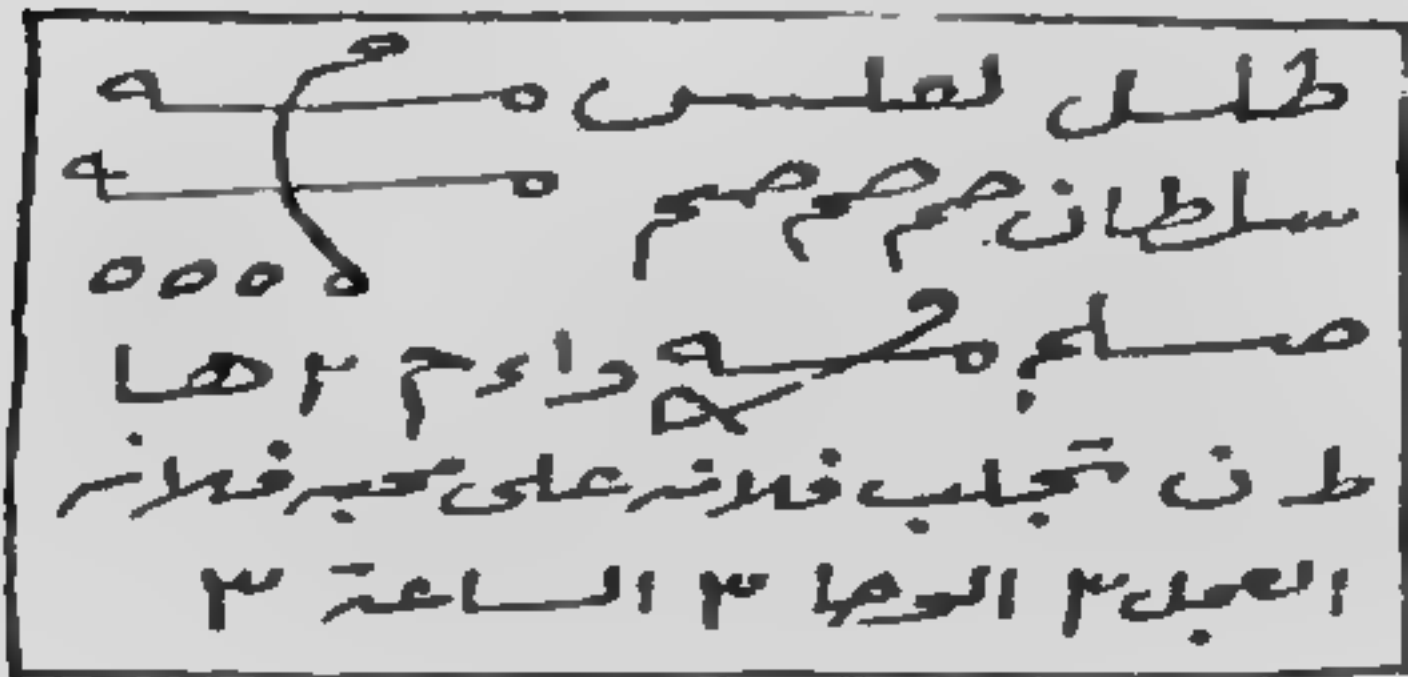 طلسل لعلس
سلطان صم صم صعم
صسلم واءم ٢ ها
ط ن تجلب فلانه على محبه فلان
العجل ٣ الوحا ٣ الساعة ٣